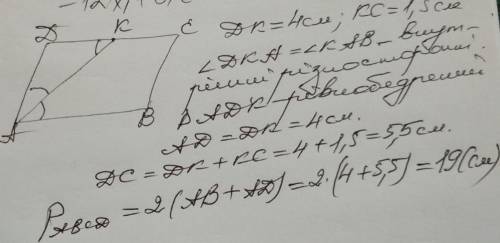 -12x)
D K C
A B
DK = 4см; KC = 1,5см
∠DKA = ∠KAB - внут-
рішні різносторонні.
△ADK - рівнобедрений
AD = DK = 4см.
DC = DK + KC = 4 + 1,5 = 5,5см.
P ABCD = 2(AB + AD) = 2·(4 + 5,5) = 19(см)